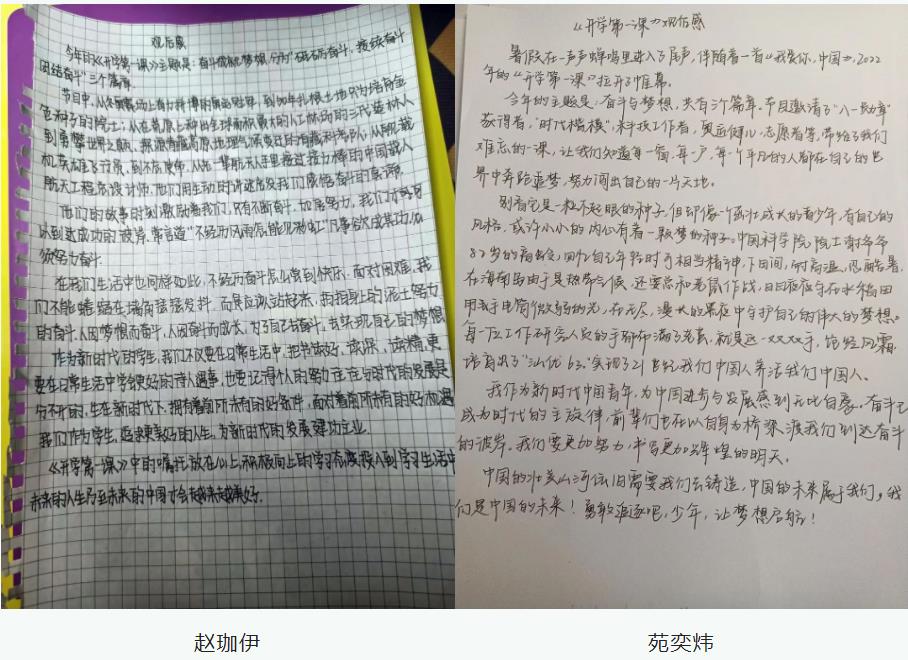 观后感
今年的《开学第一课》主题是:奋斗成就梦想,分为"砥砺奋斗、接续奋斗
团结奋斗"三个篇章。
节目中,从冬奥赛场上奋力拼搏的
金种子的院士;从在高原上种出全球面积最大的人工林场的三代造林人
到勇攀世界之巅,探源青藏高原地理气候变迁的青藏科考队;从舰载
机英雄飞行员,到不忘使命,从老一辈航天人手里接过接力棒的中国载人
航天工程总设计师。他们用生动的讲述启发我们感悟奋斗的真谛。
他们的故事时刻激励着我们,只有不断奋斗,加倍努力,我们才
以到达成功的彼岸。常言道"不经历风雨怎能见彩虹"凡事欲成其功,必
须努力奋斗。
在我们生活中也同样如此,不经历奋斗怎么尝到快乐。面对困难,我
们不能蜷缩在墙角猛猛发抖,而是应该站起来,拍拍身上的泥土努力
的奋斗,人因梦想而奋斗,人因奋斗而成长,为了自己去奋斗,去实现自己的梦想
作为新时代的学生,我们不仅要在日常生活中,把书读好、读深、读精,更
要在日常生活中学会更好的待人遇事,也要记得个人的努力往往与时代的发展是
分不开的,生在新时代下,拥有着前所未有的好条件,面对着前所未有的好机遇
我们作为学生,追求更美好的人生,为新时代的发展建功立业。
《开学第一课》中的嘱托,放在心上,积极向上的学习态度投入到学习生活中
未来的人生乃至未来的中国才会越来越美好。
《开学第一课》观后感
暑假在一声声蝉鸣里进入了尾声,伴随着一首《我爱你,中国》,2022
年的《开学第一课》拉开了帷幕。
今年的主题是:奋斗与梦想,共有三个篇章。节目邀请了"八一勋章"
获得者,"时代楷模",科技工作者,奥运健儿,志愿者等,带给了我们
难忘的一课,让我们知道每一窗,每一户,每一个平凡的人都在自己的世
界中奔跑追梦,努力闯出自己的一马天地。
别看它是一粒不起眼的种子,但却像一个茁壮成长的青少年,有自己的
风格,或许小小的内心有着一颗梦的种子。中国科学院院士谢华安
82岁的高龄,回个自己年轻时可相当精神,下田间,耐高温,忍酷暑。
在海南岛由于是热带气候,还要忍和老鼠作战,日日夜夜守在水稻田
用手电筒微弱的光,在无尽,漫长的黑夜中守护自己的伟大的梦想。
每一位工作研究人员的手都布满了老茧,就是这一双双手,饱经风霜
培育出了"汕优63",实现了21世纪我们中国人养活我们中国人。
我作为新时代中国青年,为中国进步与发展感到无比自豪。奋斗已
成为时代的主旋律,前辈们也在以自身为桥梁,渡我们到达奋斗
的彼岸。我们要更加努力,书写更加辉煌的明天。
中国的壮美山河依旧需要我们去铸造,中国的未来属于我们,我
们是中国的未来!勇敢追逐吧,少年,让梦想启航!
赵珈伊
苑奕炜